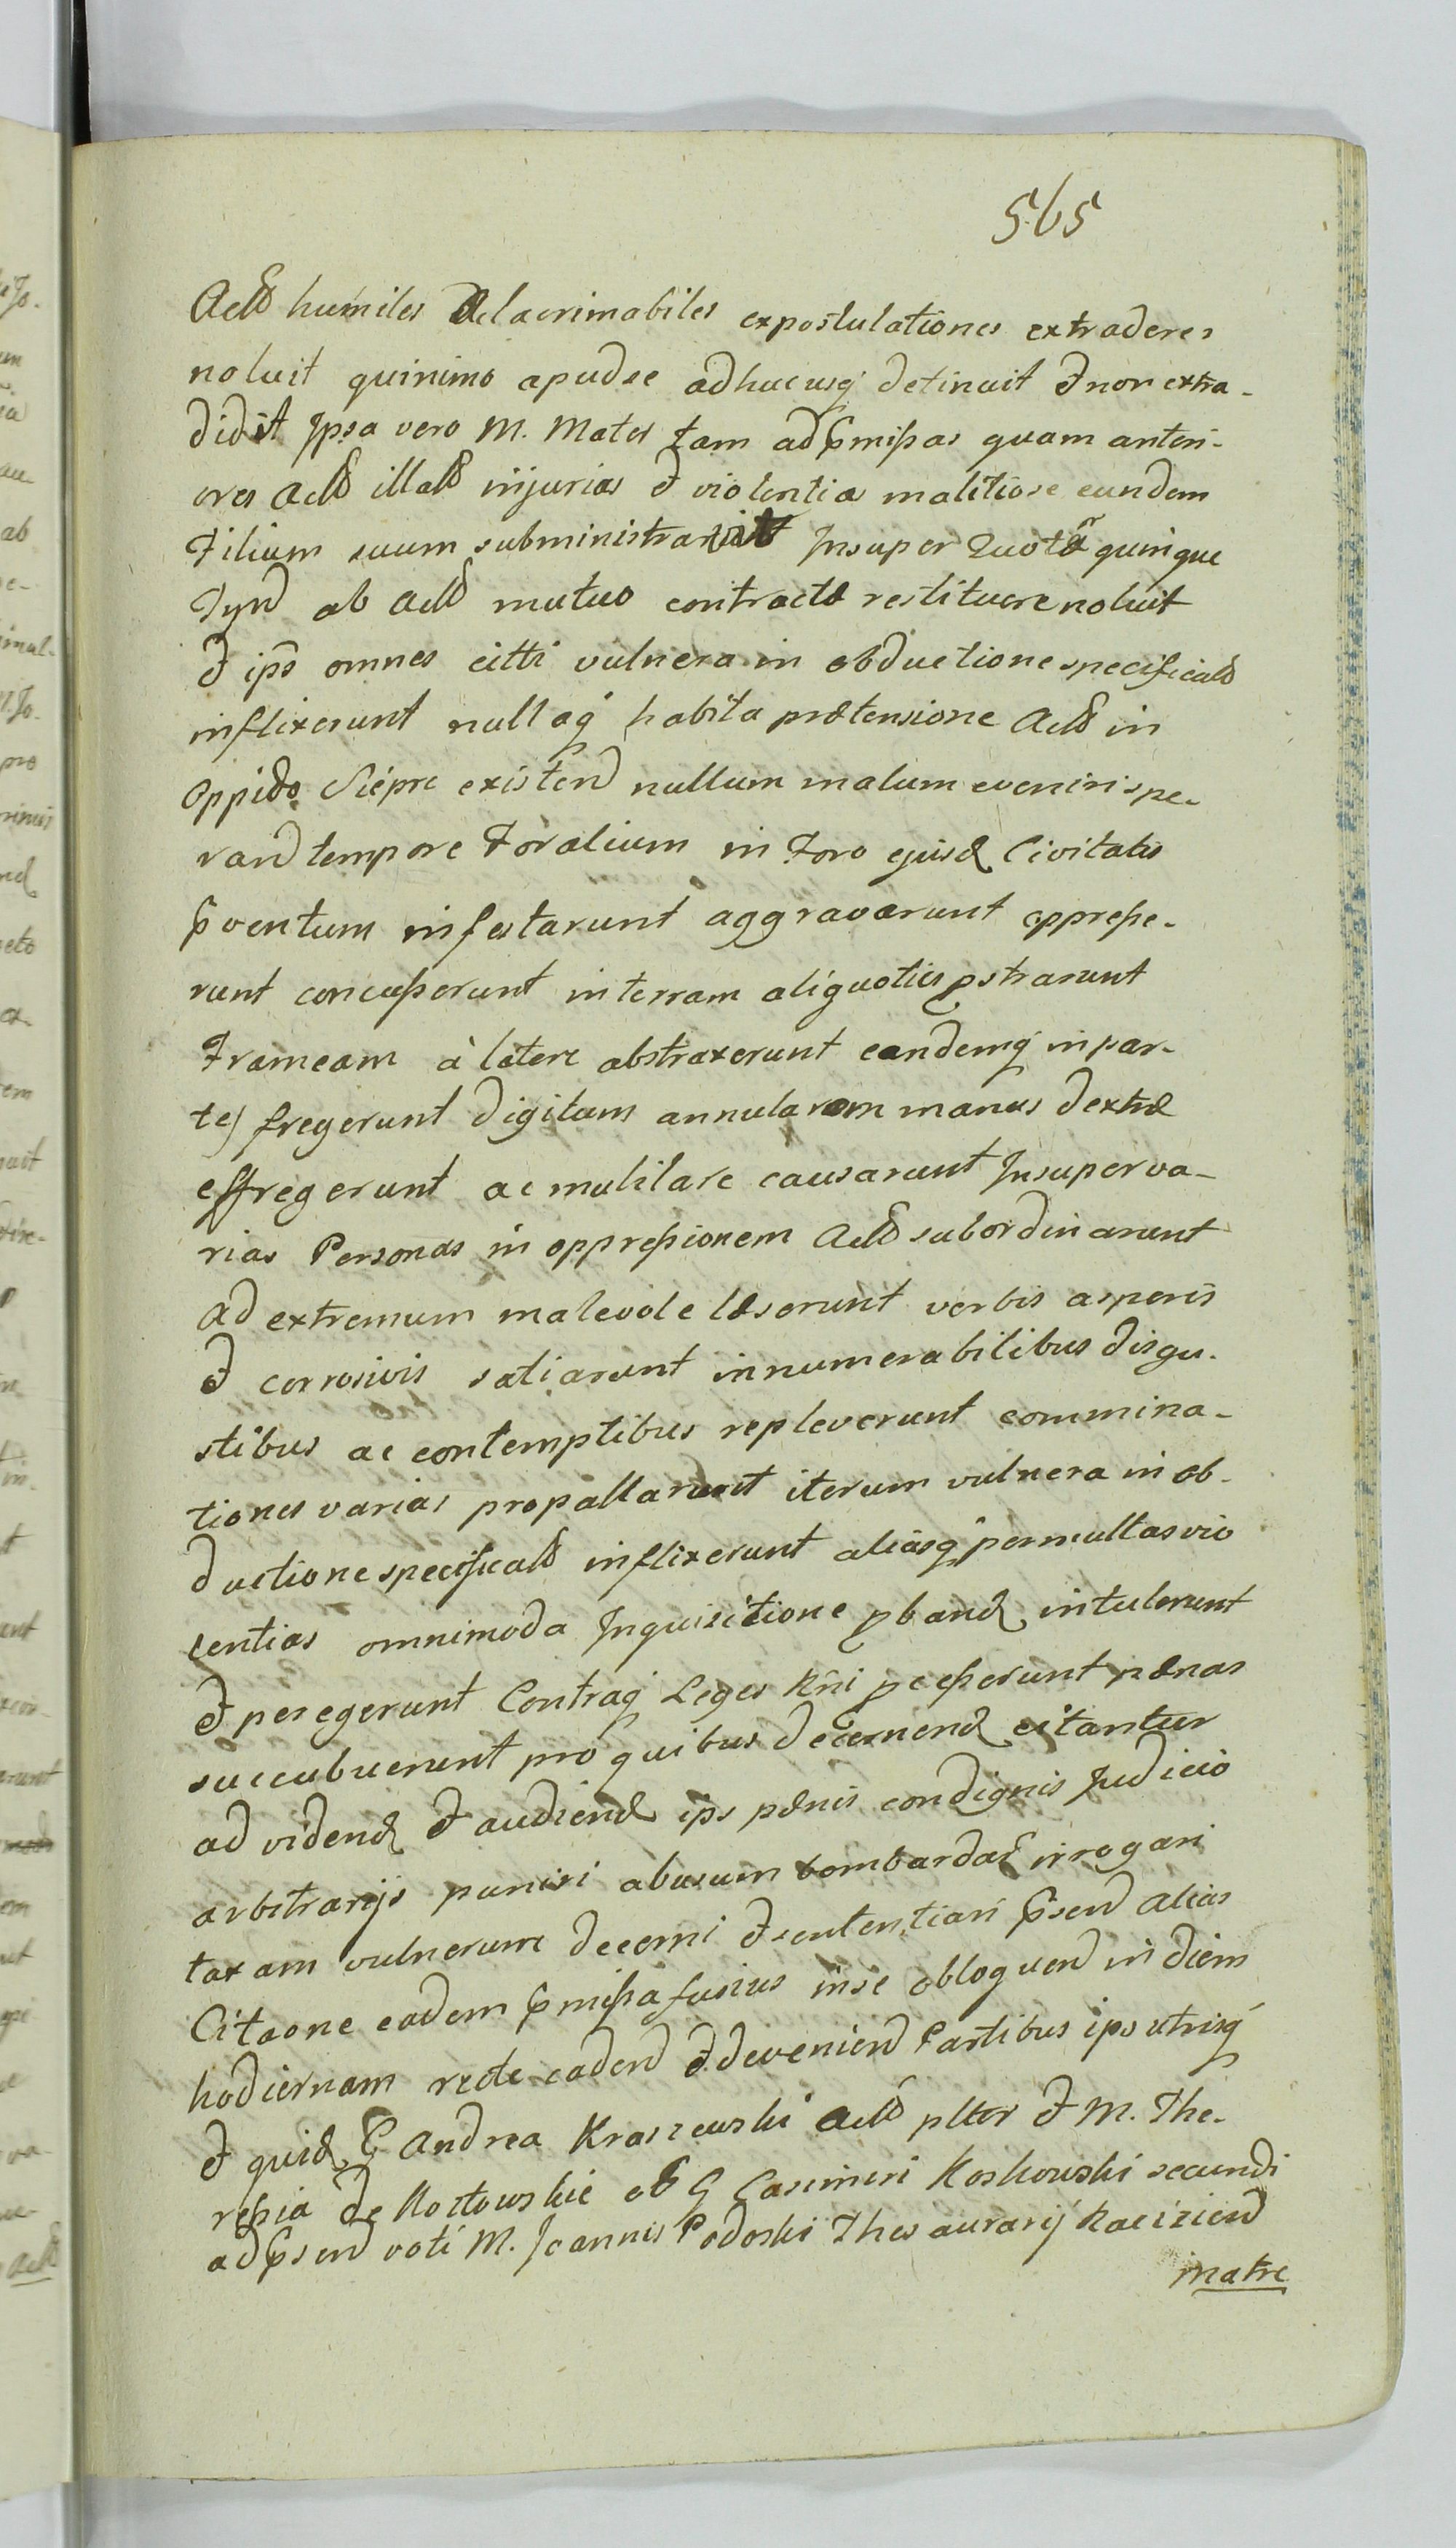 565
Actts humiles et lacrimabiles expostulationes extraderes
noluit quinimo apud se adhucusq detinuit et non extra-
didit Ipsa vero M. Mater tam ad pmissas quam anteri-
ores Actts illatts injurias et violentias malitiose eundem
Filium suum subministravit Insuper Quotã quinque
Tynf ab Actts mutuo contractæ restituere noluit
et ips omnes citti vulnera in obductione specificatts
inflixerunt nullaq habita prætensione Actts in
Oppido Siepre existen nullum malum eveniri spe-
rand tempore Foralium in Foro ejusd Civitatis
pventum infestarunt aggravarunt oppresse-
runt concusserunt in terram aliquoties pstrarunt
Frameam à latere abstraxerunt eandemq in par-
tes fregerunt digitum annularem manus dextræ
effregerunt ac mutilare causarunt Insuper va-
rias Personas in oppressionem Actts subordinarunt
ad extremum malevole læserunt verbis asperis
et corrosivis satiarunt innumerabilibus disgu-
stibus ac contemptibus repleverunt commina-
tiones varias propallarunt iterum vulnera in ob-
ductione specificatts inflixerunt aliasq permultas vio
lentias omnimoda Inquisitione pband intulerunt
et peregerunt Contraq Leges Rni pcesserunt pænas
succubuerunt pro quibus decernend citantur
ad vidend et audiend ips pænis condignis Judicio
arbitrarijs puniri abusum bombardas irrogari
taxam vulnerum decerni et sententiari psend alias
Citaone eadem pmissa fusius in se obloquend in diem
hodiernam recte cadend et devenien Partibus ips utrisq
et quid G Andrea Kraszewski Actts plter et M. The-
resia de Kostowskie ol G Casimiri Koskowski secundi
ad psend voti M. Joannis Podoski Thesaurarij Raciżien
matre